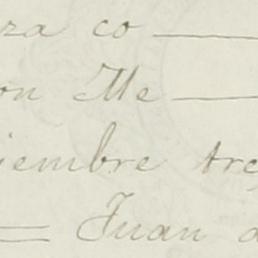 za co
on Me
iembre trc
Juan d